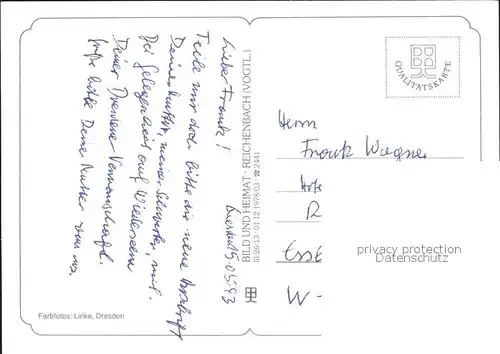 Dresden 15.05.93
Lieber Frank!
Teile mir doch bitte die neue Anschrift
Deiner Mutter, meiner Schwester, mit.
Bei Gelegenheit auf Wiedersehn
Deiner Dresdener Verwandtschaft.
Grüße bitte Deine Mutter von uns.
Farbfotos: Linke, Dresden
BILD UND HEIMAT · REICHENBACH (VOGTL.)
III/26/13 · 01 12 1978/03 ☎ 2441
QUALITÄTSKARTE
Herrn
Frank Wagner
W-
privacy protection
Datenschutz